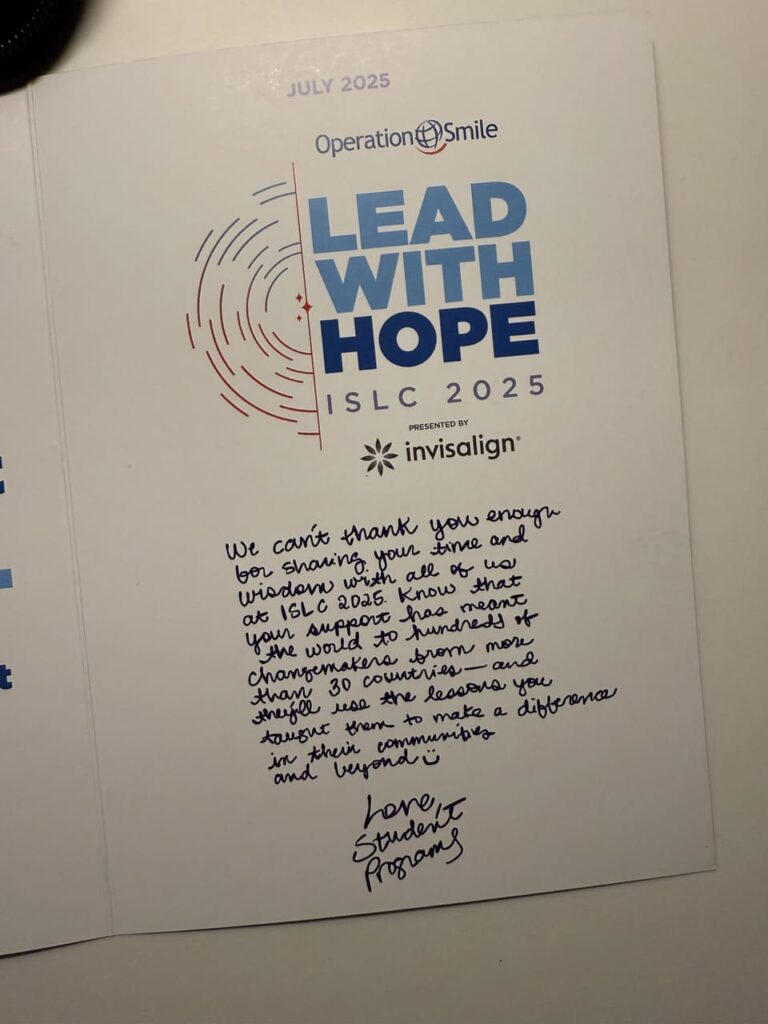 JULY 2025
Operation Smile
LEAD
WITH
HOPE
ISLC 2025
PRESENTED BY
invisalign®
We can't thank you enough
for sharing your time and
wisdom with all of us
at ISLC 2025. Know that
your support has meant
the world to hundreds of
changemakers from more
than 30 countries — and
they'll use the lessons you
taught them to make a difference
in their communities
and beyond
Love,
Student
Programs